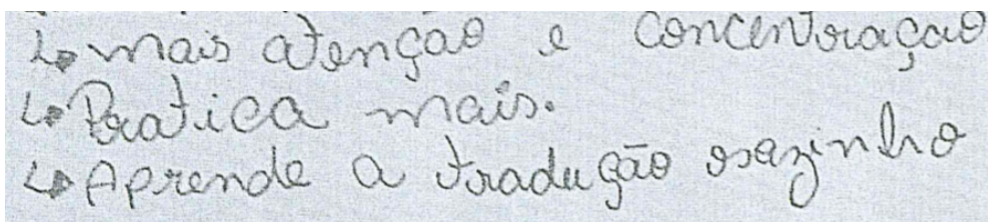 ↳ mais atenção e concentração
↳ Pratica mais.
↳ Aprende a tradução sozinho